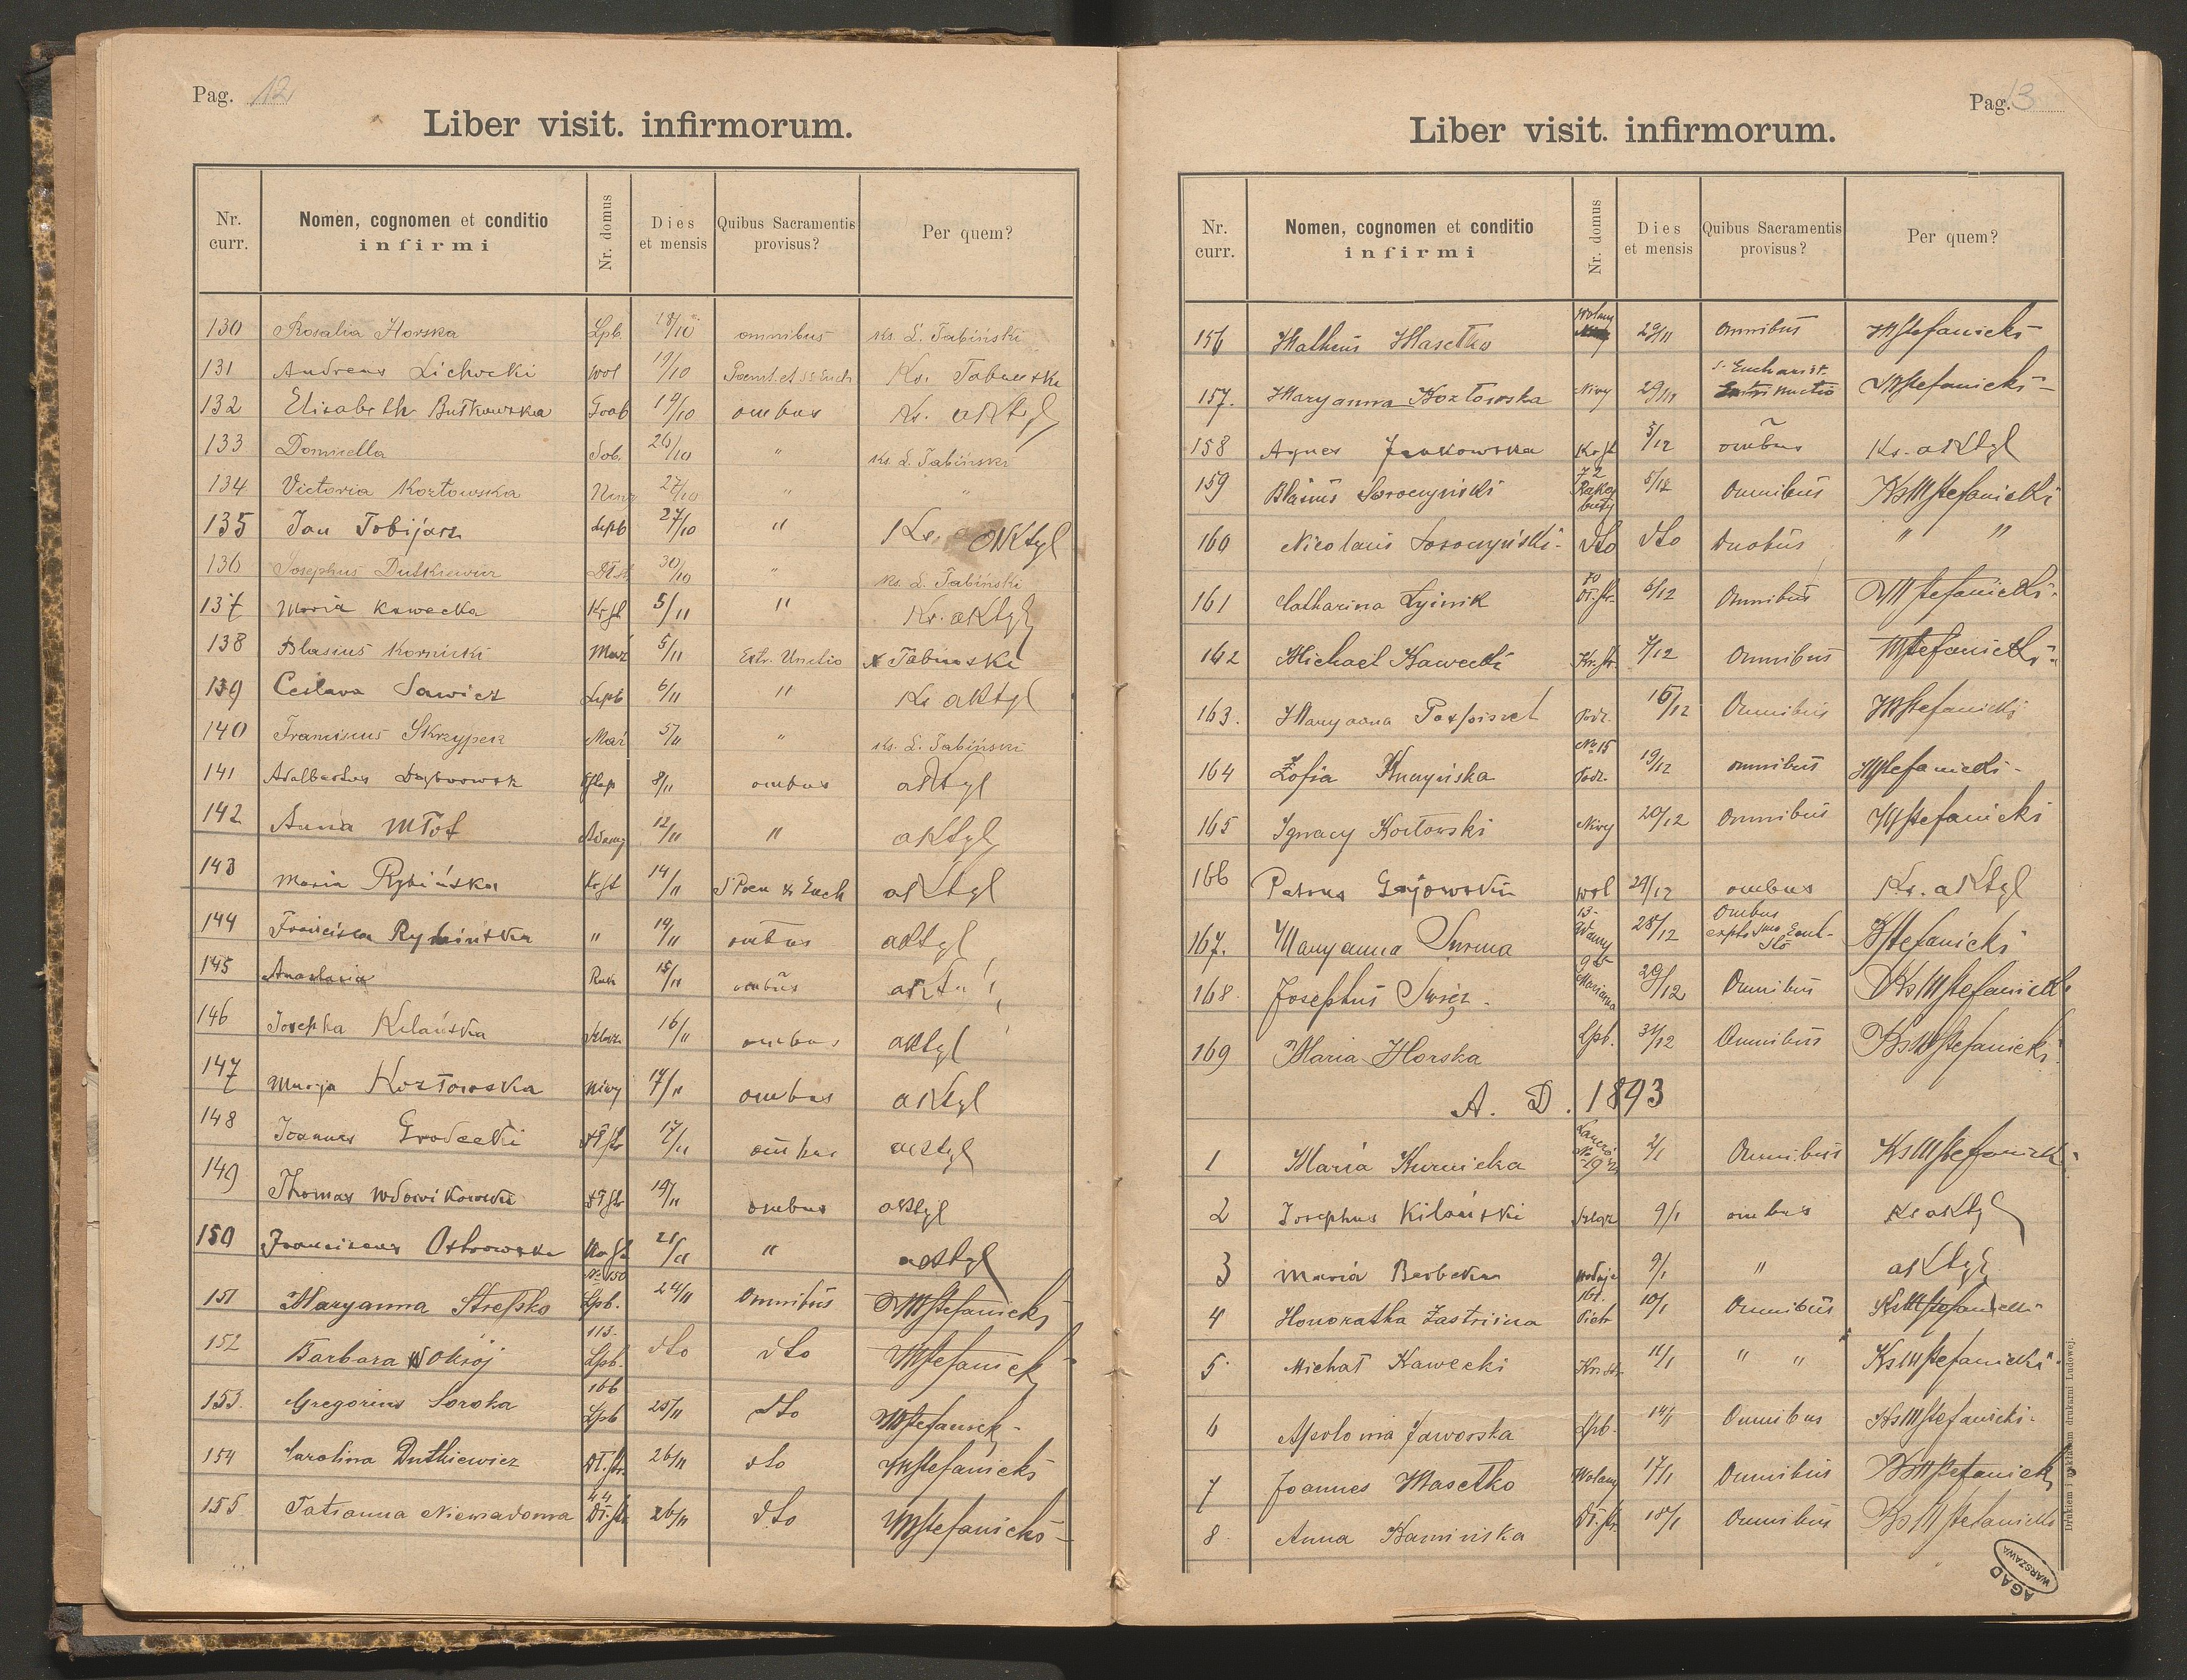 Pag. 12
Liber visit. infirmorum.
Nr. curr. Nomen, cognomen et conditio infirmi Nr. domus Dies et mensis Quibus Sacramentis provisus? Per quem?
130 Rosalia Horska Lpb. 18/10 omnibus Ks. L. Tabiński
131 Andreas Lichocki Wol 19/10 Ks.
132 Elisabeth Butkowska 19/10 ombus Ks. aKtyl
133 Domicella Sob. 26/10 " Ks. L. Tabiński
134 Victoria Kozłowska 27/10 " "
135 Jan Tobijasz Lpb 27/10 " Ks. aKtyl
136 Josephus Dutkiewicz 30/10 " Ks. L. Tabiński
137 Maria Kawecka Krst 5/11 " Ks. aKtyl
138 Blasius Kornicki Mar 5/11 Extr. Unctio
139 Ceslava Sawicz Lpb 6/11 " Ks aKtyl
140 Franciscus Skrzypek Mar 5/11 " Ks. L. Tabiński
141 Adalbertus 8/11 ombus aKtyl
142 Anna Młot Adamy 12/11 " aKtyl
143 Maria Rybińska Krst 14/11 S Poen & Euch aKtyl
144 Francisca " 14/11 ombus aKtyl
145 Anastasia 15/11 ombus
146 Josepha Kilańska 16/11 ombus aKtyl
147 Marja Kozłowska Niwy 17/11 ombus aKtyl
148 Joannes Grodecki 17/11 ombus aKtyl
149 Thomas 19/11 ombus aKtyl
150 Ostrowska 21/11 " aKtyl
151 Maryanna No 150 Lpb. 24/11 Omnibus MStefanicki
152 Barbara 113. Lpb. dto dto MStefanicki
153. Gregorius Soroka 166 Lpb 25/11 dto MStefanicki
154 Carolina Dutkiewicz Dł. str. 26/11 dto MStefanicki
155 Tatianna Niewiadoma 44 Dł. str. 26/11 dto MStefanicki
Pag. 13
Liber visit. infirmorum.
Nr. curr. Nomen, cognomen et conditio infirmi Nr. domus Dies et mensis Quibus Sacramentis provisus? Per quem?
156 Matheus Masełko Wolany 29/11 Omnibus MStefanicki
157. Maryanna Kozłowska Niwy 29/11 S. Eucharist. MStefanicki
158 Agnes Jankowska Krst 5/12 ombus Ks. aKtyl
159 Blasius Soroczyński 72 5/12 Omnibus Ks MStefanicki
160 Nicolaus Soroczyński dto dto Duobus " "
161 Catharina 50 Dł. str. 6/12 Omnibus MStefanicki
162 Michael Kawecki Kr. str. 7/12 Omnibus MStefanicki
163. Maryanna Pospiszel Podz. 16/12 Omnibus MStefanicki
164 Zofia No 15 Podz. 19/12 omnibus MStefanicki
165 Ignacy Kozłowski Niwy 20/12 Omnibus MStefanicki
166 Petrus Gajowski Wol 24/12 ombus Ks. aKtyl
167. Maryanna Surma 13. 28/12 Ombus MStefanicki
168. Josephus 95 Marianna 29/12 Omnibus Ks MStefanicki
169 Maria Horska Lpb. 31/12 Omnibus Ks MStefanicki
A. D. 1893
1 Maria Kurnicka 2/1 Omnibus Ks MStefanicki
2 Josephus Kilański 9/1 ombus Ks aKtyl
3 Maria Berbeka 9/1 " aKtyl
4 Honoratha 10/1 Omnibus Ks MStefanicki
5. Michał Kawecki Kr. str. 11/1 " " Ks MStefanicki
6 Apolonia Jaworska Lpb. 14/1 Omnibus Ks MStefanicki
7 Joannes Masełko Wolany 17/1 Omnibus Ks MStefanicki
8. Anna Kamińska Dł. str. 18/1 Omnibus Ks MStefanicki
Drukiem i nakładem drukarni Ludowej.
AGAD
WARSZAWA